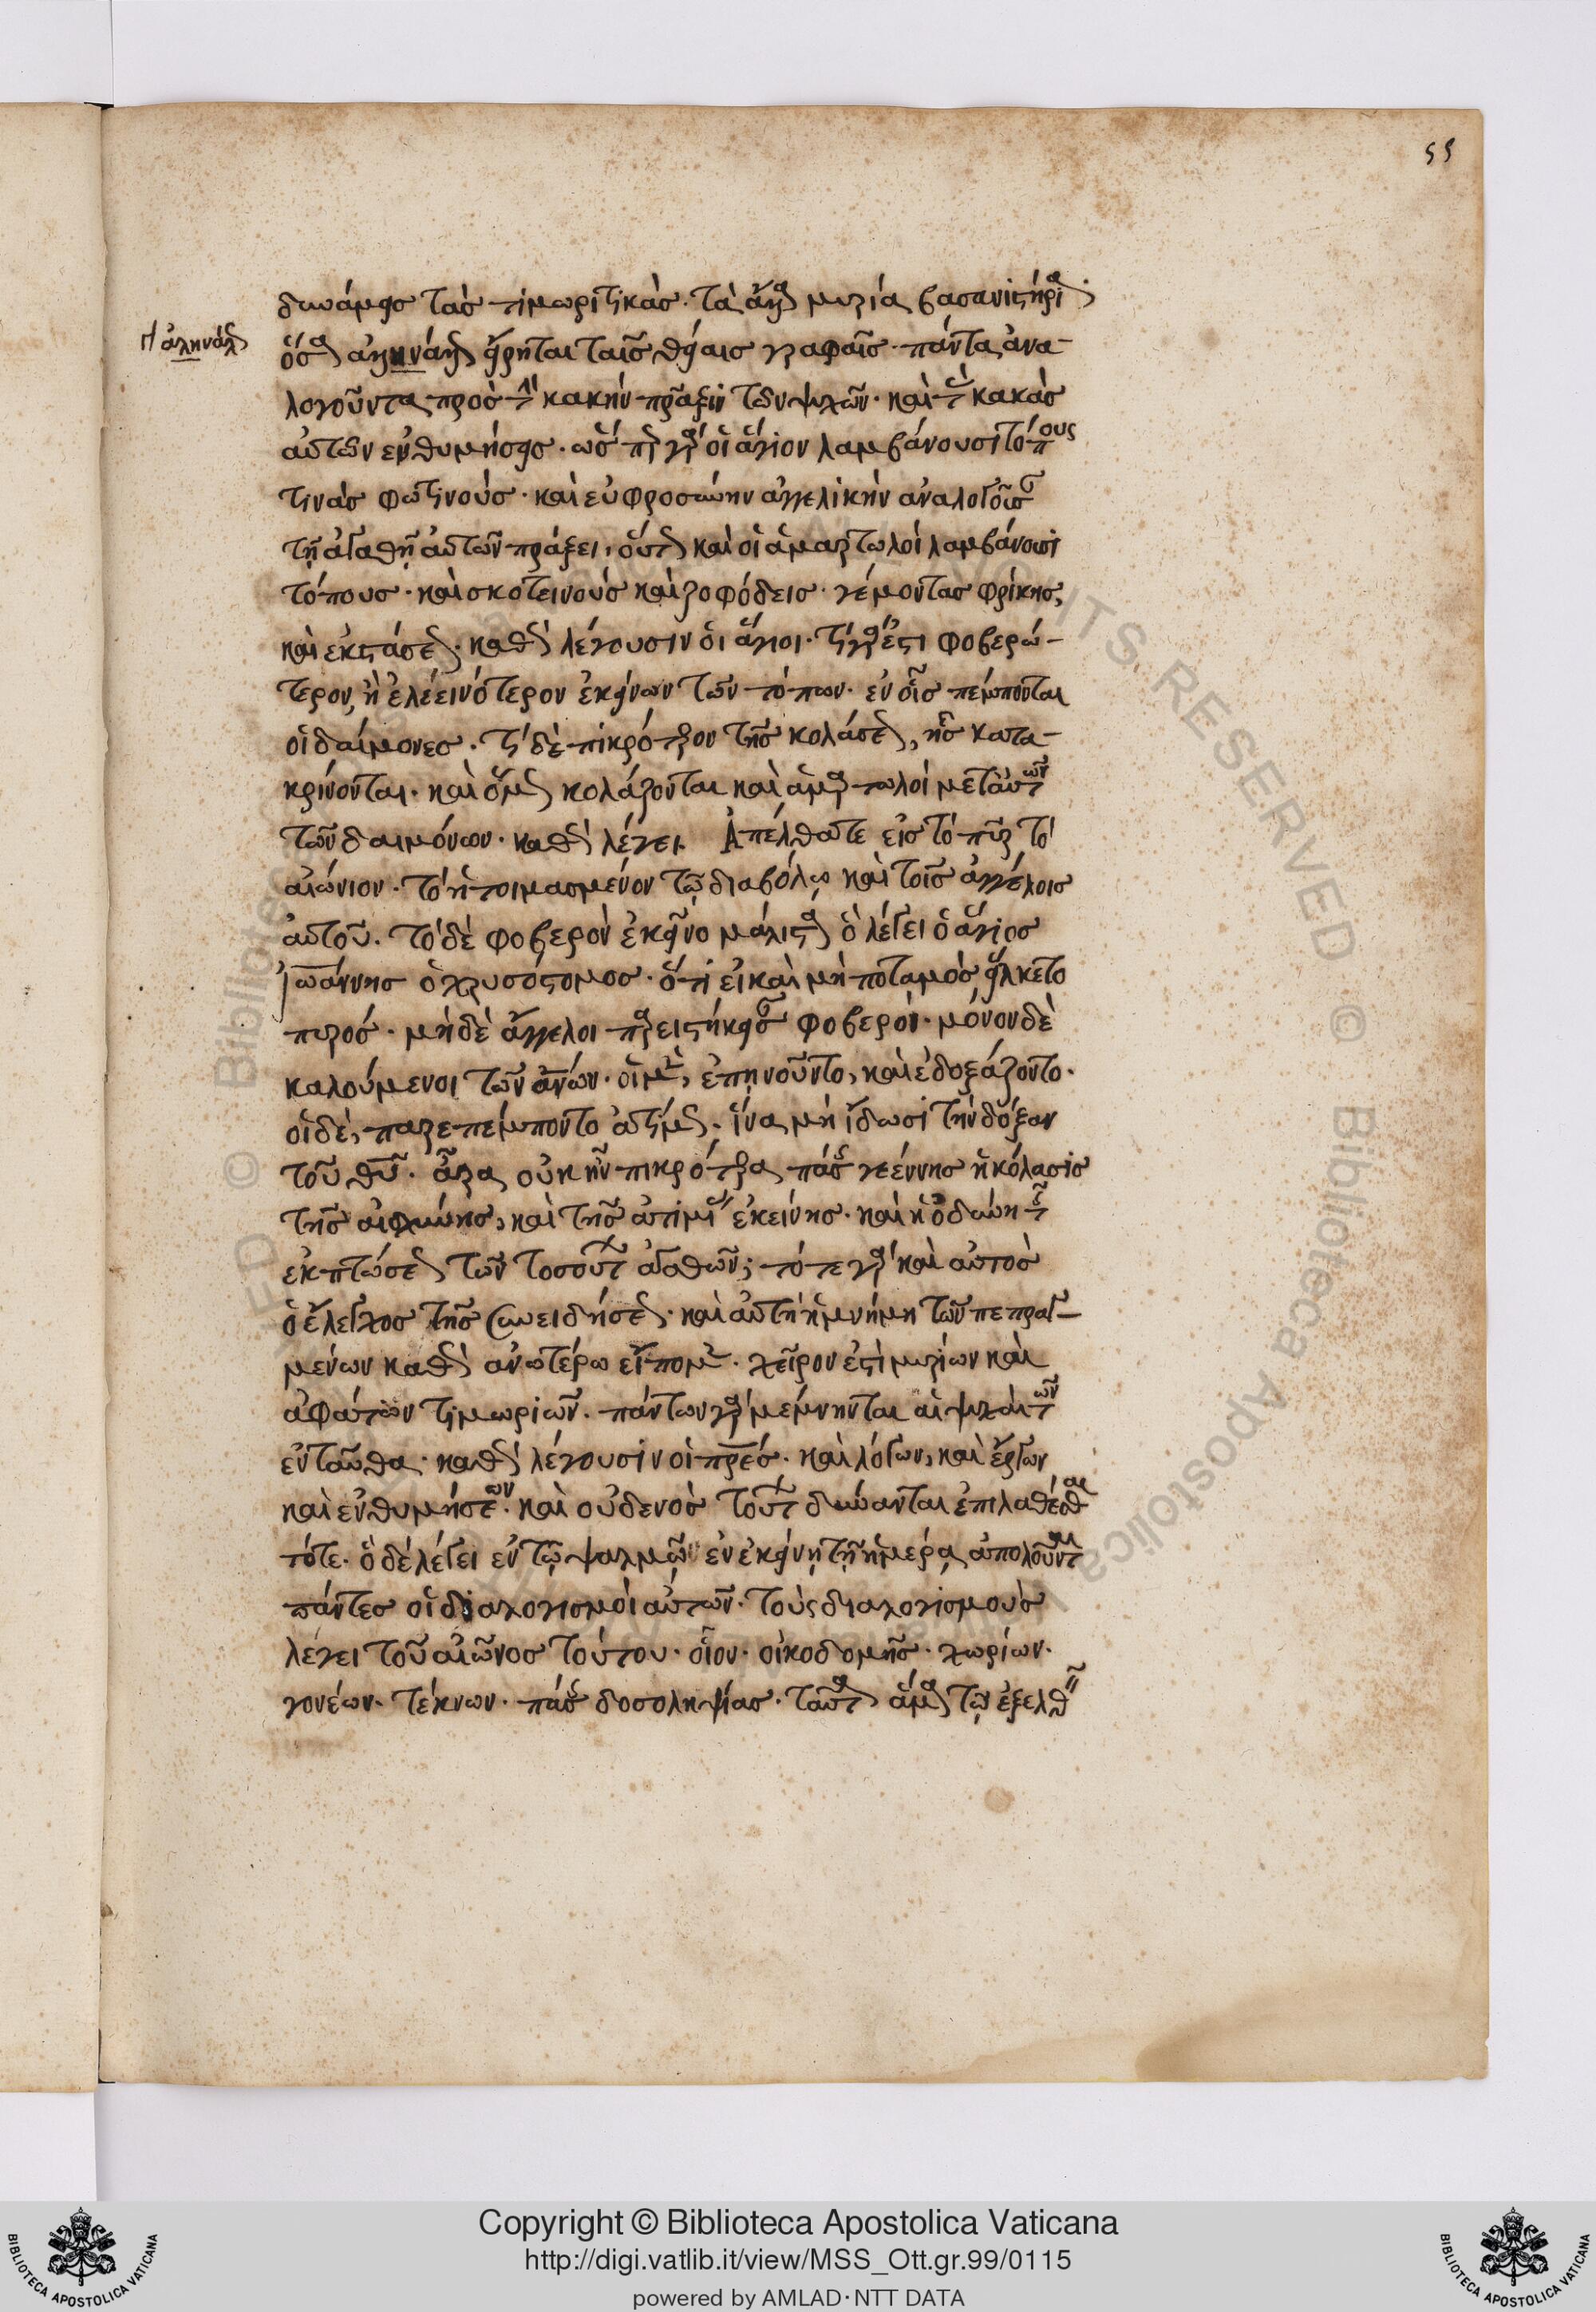 55
δυνάμεις τὰς τιμωρητικάς· τὰ ἄλλα μυρία βασανιστήρια·
Η ἀληνάλ
ὅσα ἀληνάλλ εἴρηται ταῖς θείαις γραφαῖς· πάντα ἀνα-
λογοῦντα πρὸς τὴν κακὴν πρᾶξιν τῶν ψυχῶν· καὶ τὰς κακὰς
αὐτῶν ἐνθυμήσεις· ὥσπερ γὰρ οἱ ἅγιοι λαμβάνουσι τόπους
τινὰς φωτινούς· καὶ εὐφροσύνην ἀγγελικὴν ἀναλογοῦσαν
τῇ ἀγαθῇ αὐτῶν πράξει, οὕτως καὶ οἱ ἁμαρτωλοὶ λαμβάνουσι
τόπους· καὶ σκοτεινοὺς καὶ ζοφόδεις· γέμοντας φρίκης,
καὶ ἐκστάσεως· καθὼς λέγουσιν οἱ ἅγιοι· τί γὰρ ἐστι φοβερώ-
τερον, ἢ ἐλεεινότερον ἐκείνων τῶν τόπων· ἐν οἷς πέμπονται
οἱ δαίμονες· τί δὲ πικρότερον τῆς κολάσεως, ἧς κατα-
κρίνονται· καὶ ὅμως κολάζονται καὶ ἁμαρτωλοὶ μετ' αὐτῶν
τῶν δαιμόνων· καθὼς λέγει. Ἀπέλθατε εἰς τὸ πῦρ τὸ
αἰώνιον· τὸ ἡτοιμασμένον τῷ διαβόλῳ καὶ τοῖς ἀγγέλοις
αὐτοῦ. τὸ δὲ φοβερὸν ἐκεῖνο μάλιστα ὃ λέγει ὁ ἅγιος
Ἰωάννης ὁ χρυσόστομος· ὅτι εἰ καὶ μὴ ποταμὸς εἵλκετο
πυρός· μὴ δὲ ἄγγελοι παρειστήκεισαν φοβεροί· μόνον δὲ
καλούμενοι τῶν ἀνων· οἱ μὲν, ἐπηνοῦντο, καὶ ἐδοξάζοντο·
οἱ δὲ, παρεπέμποντο ἀτίμως· ἵνα μὴ ἴδωσι τὴν δόξαν
τοῦ θυ· ἆρα οὐκ ἦν πικρότερα πάσης γεέννης ἡ κόλασις
τῆς αἰσχύνης, καὶ τῆς ἀτιμίας ἐκείνης· καὶ ἡ ὀδύνη τῆς
ἐκπτώσεως τῶν τοσούτων ἀγαθῶν; τότε γὰρ καὶ αὐτὸς
ὁ ἔλεγχος τῆς συνειδήσεως· καὶ αὐτὴ ἡ μνήμη τῶν πεπραγ-
μένων καθὼς ἀνωτέρω εἴπομεν· χεῖρον ἐστὶ μυρίων καὶ
ἀφάτων τιμωριῶν· πάντων γὰρ μέμνηνται αἱ ψυχαὶ τῶν
ἐνταῦθα· καθὼς λέγουσιν οἱ πρες· καὶ λόγων, καὶ ἔργων
καὶ ἐνθυμήσεων· καὶ οὐδενὸς τούτων δύνανται ἐπιλαθέσθαι
τότε. ὃ δὲ λέγει ἐν τῷ ψαλμῷ ἐν ἐκείνῃ τῇ ἡμέρᾳ ἀπολοῦνται
πάντες οἱ διαλογισμοὶ αὐτῶν· τοὺς διαλογισμοὺς
λέγει τοῦ αἰῶνος τούτου· οἷον· οἰκοδομῆς· χωρίων·
γονέων· τέκνων· πάσης δοσοληψίας· ταῦτα ἅμα τῷ ἐξελθεῖν
Copyright © Biblioteca Apostolica Vaticana
http://digi.vatlib.it/view/MSS_Ott.gr.99/0115
powered by AMLAD·NTT DATA